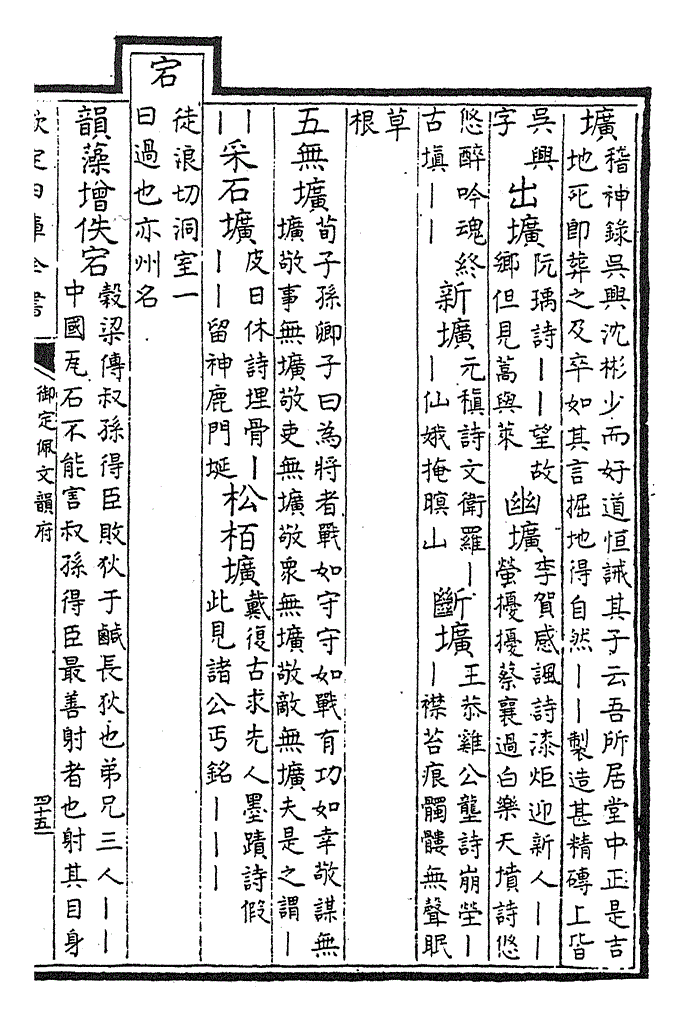 壙稽神錄吳興沈彬少而好道恒誡其子云吾所居堂中正是吉地死即葬之及卒如其言掘地得自然丨丨製造甚精磚上皆
吳興字出壙阮瑀詩丨丨望故鄉但見蒿與萊幽壙李賀感諷詩漆炬迎新人丨丨螢擾擾蔡襄過白樂天墳詩悠
悠醉吟魂終古塡丨丨新壙元稹詩文衛羅丨丨仙娥掩暝山斷壙王恭雞公壟詩崩塋丨丨襟苔痕髑髏無聲眠
草根
五無壙荀子孫卿子曰為將者戰如守守如戰有功如幸敬謀無壙敬事無壙敬吏無壙敬衆無壙敬敵無壙夫是之謂丨
丨丨采石壙皮日休詩埋骨丨丨丨留神鹿門埏松栢壙戴復古求先人墨蹟詩假此見諸公丐銘丨丨丨
宕徒浪切洞室一曰過也亦州名
韻藻增佚宕穀梁傳叔孫得臣敗狄于鹹長狄也弟兄三人丨丨中國瓦石不能害叔孫得臣最善射者也射其目身
欽定四庫全書 御定佩文韻府 四十五